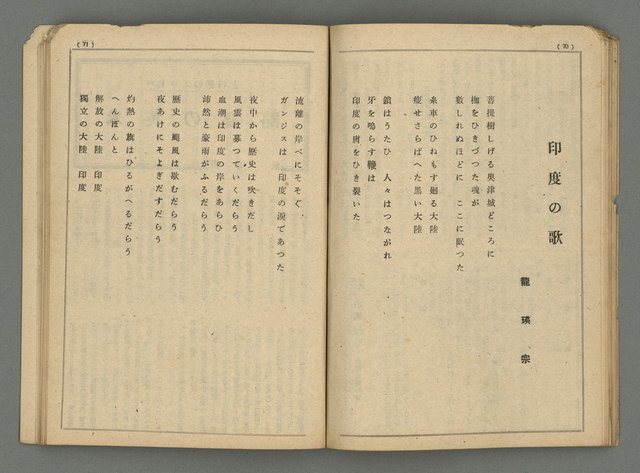 (70)
印度の歌
龍瑛宗
菩提樹しげる奥津城どころに
枷をひきづつた魂が
數しれぬほどに ここに眠つた
糸車のひねもす廻る大陸
痩せさらばへた黒い大陸
鎖はうたひ 人々はつながれ
牙を鳴らす鞭は
印度の膚をひき裂いた
(71)
流離の岸べにそそぐ
ガンジスは 印度の涙であつた
夜中から歴史は吹きだし
風雲は募つていくだらう
血潮は印度の岸をあらひ
沛然と豪雨がふるだらう
歴史の颱風は歇むだらう
夜あけにそよぎだすだらう
灼熱の旗はひるがへるだらう
へんぽんと
解放の大陸 印度
獨立の大陸 印度